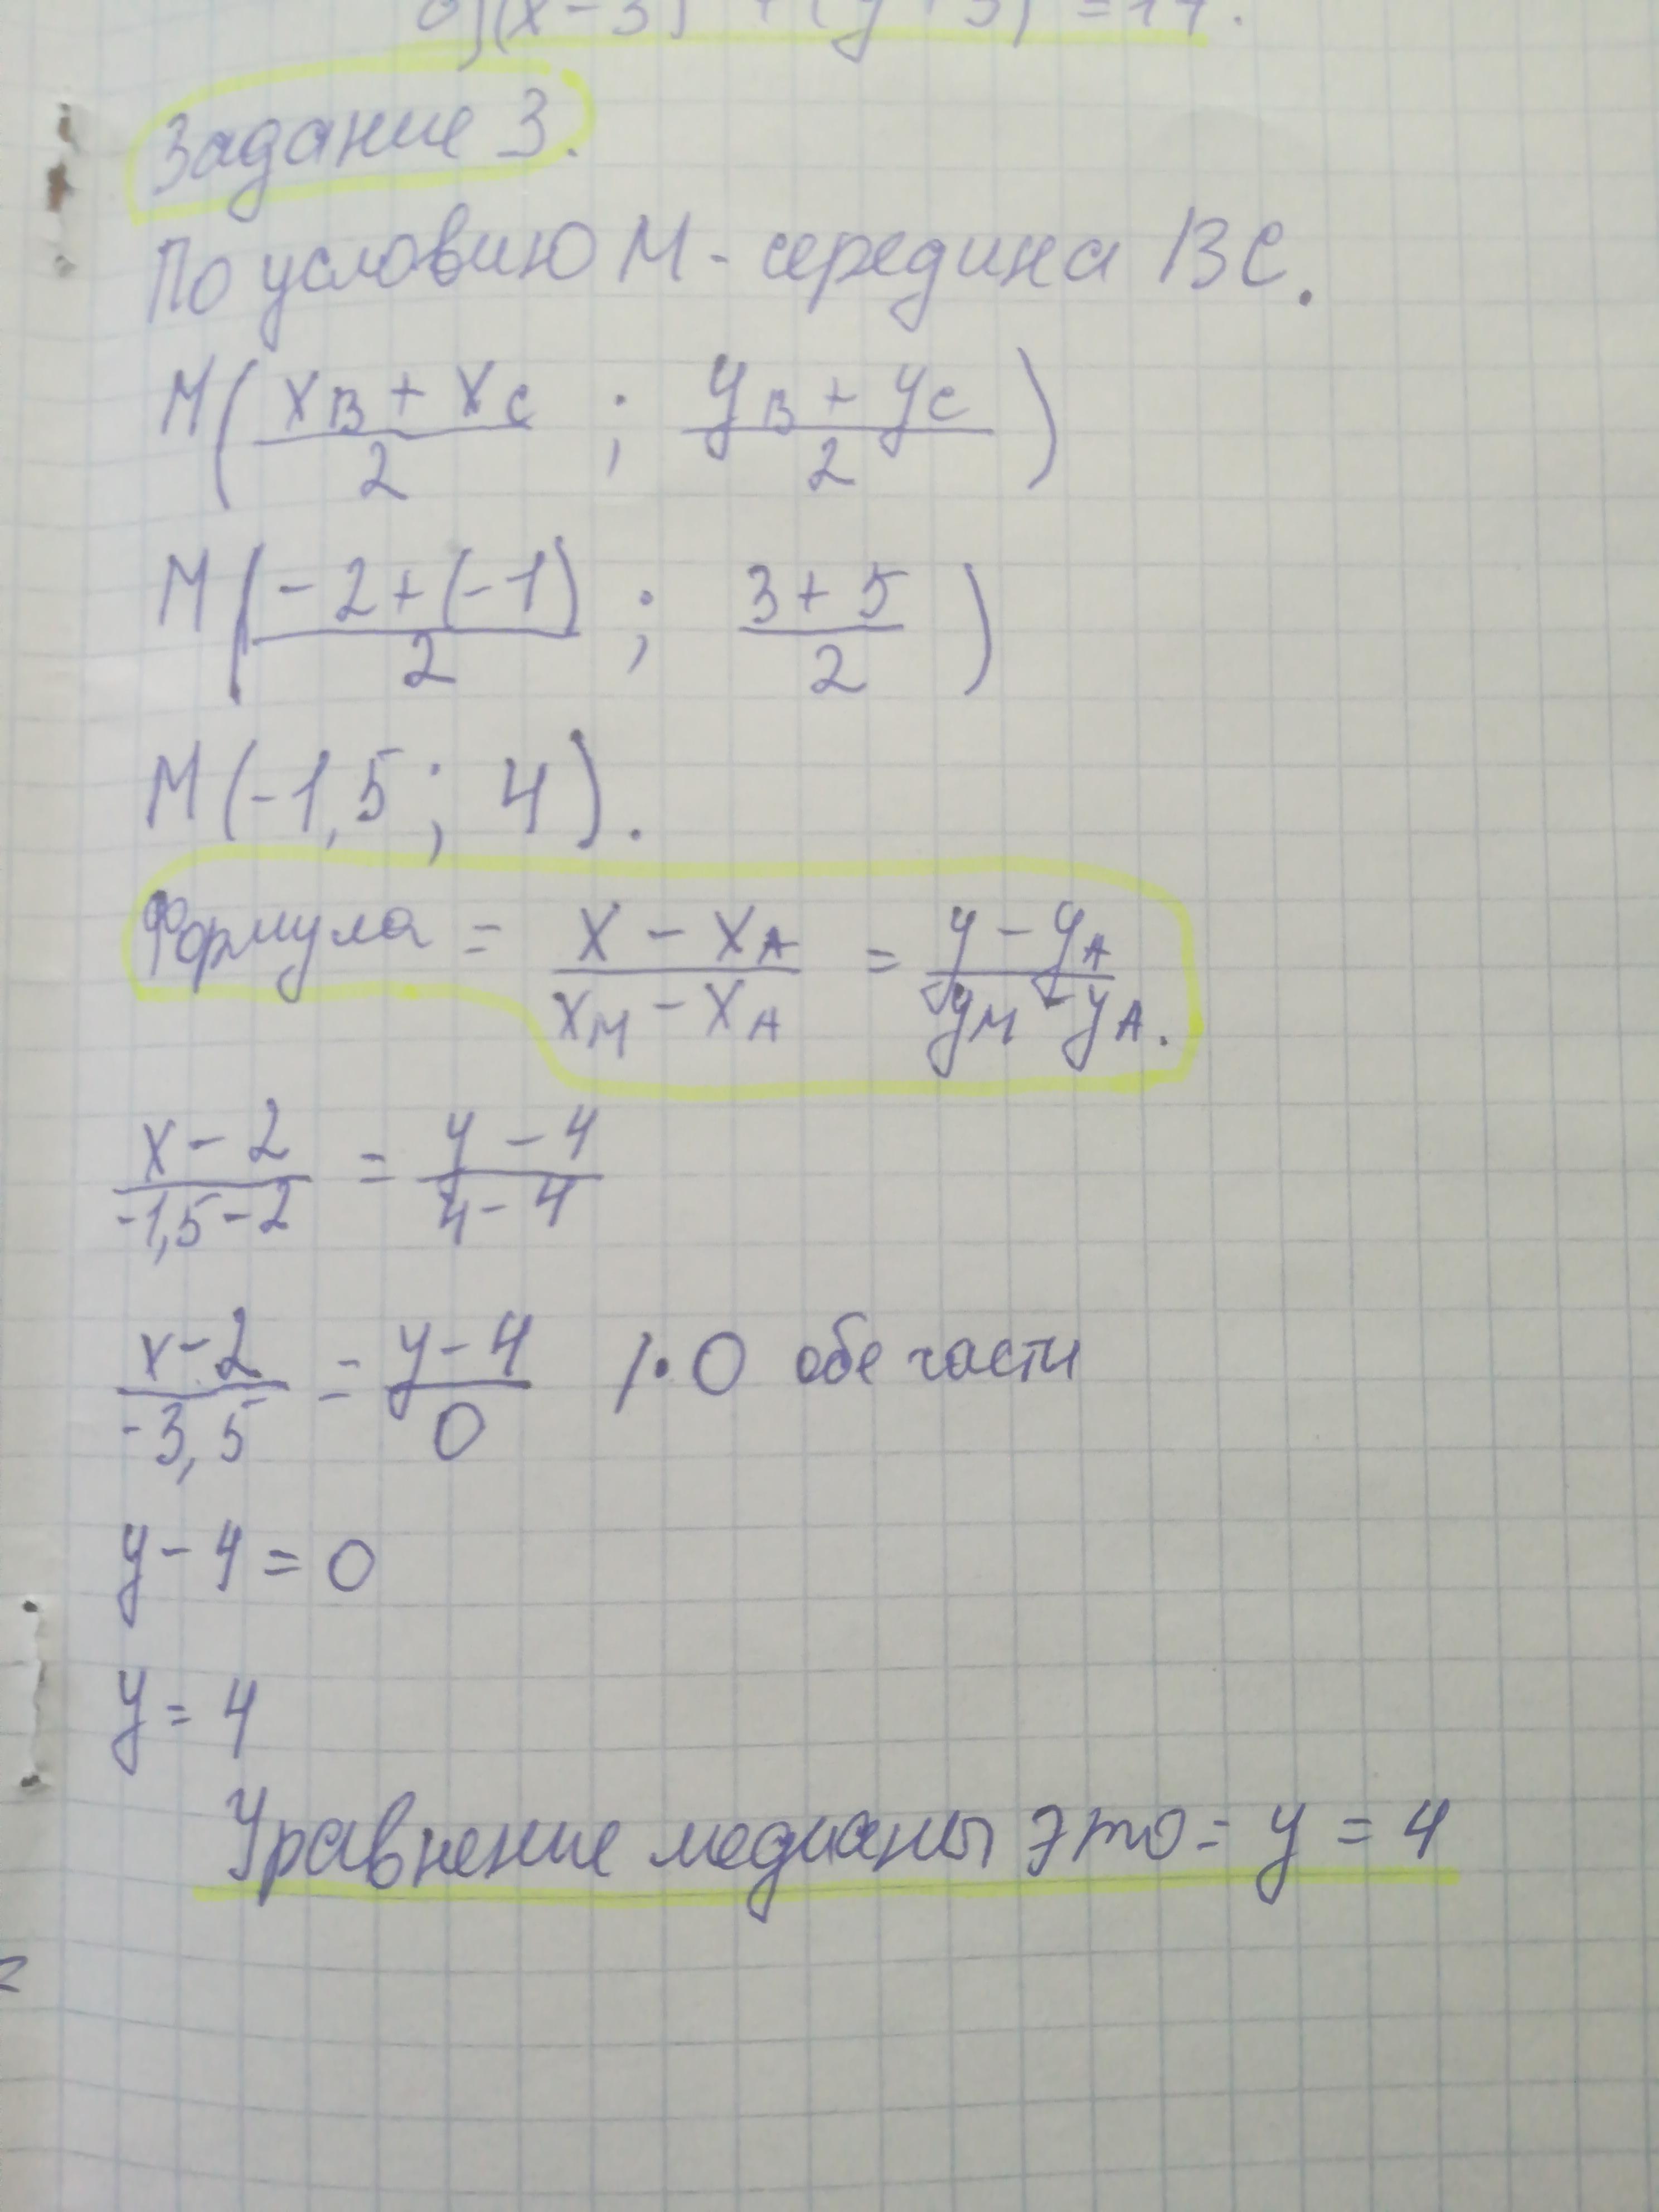 б)(x-3)²+(y+5)²=17.
Задание 3.
По условию M - середина BC.
M( (xB + xC)/2 ; (yB + yC)/2 )
M( (-2+(-1))/2 ; (3+5)/2 )
M(-1,5; 4).
Формула = (x - xA)/(xM - xA) = (y - yA)/(yM - yA).
(x-2)/(-1,5-2) = (y-4)/(4-4)
(x-2)/(-3,5) = (y-4)/0 /·0 обе части
y-4=0
y=4
Уравнение медианы это= y=4